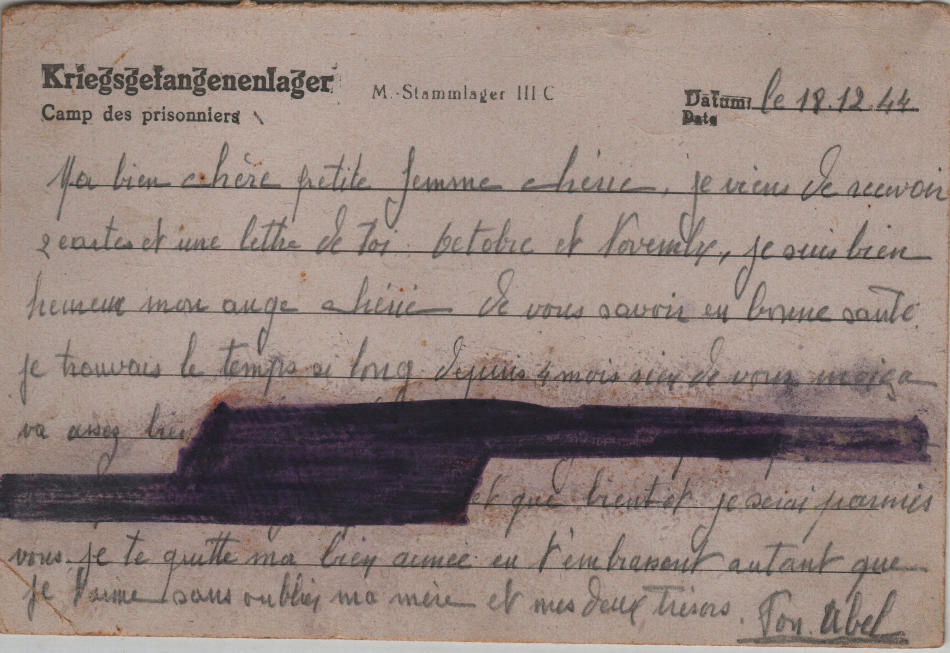 Kriegsgefangenenlager
M.-Stammlager III C
Datum: le 18.12.44
Camp des prisonniers
Date
Ma bien chère petite femme chérie, je viens de recevoir
2 cartes et une lettre de toi Octobre et Novembre, je suis bien
heureux mon ange chérie de vous savoir en bonne santé
je trouvais le temps si long depuis 4 mois rien de vous moi ça
va assez bien
et que bientot je serai parmis
vous. je te quitte ma bien aimée en t'embrassent autant que
je t'aime sans oublier ma mère et mes deux trésors. Ton Abel